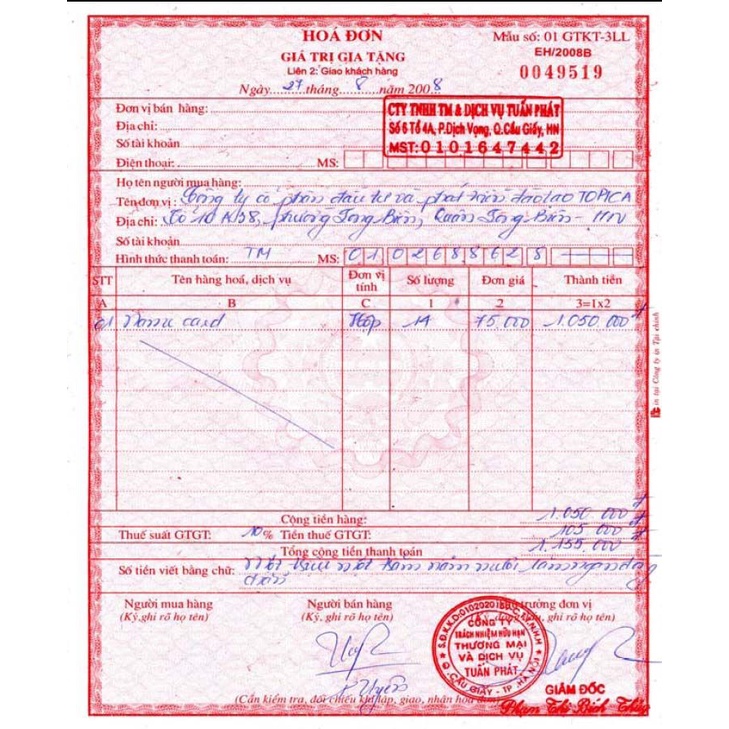 HOÁ ĐƠN
GIÁ TRỊ GIA TĂNG
Liên 2: Giao khách hàng
Ngày 27 tháng 8 năm 2008
Mẫu số: 01 GTKT-3LL
EH/2008B
0049519
Đơn vị bán hàng:
Địa chỉ:
Số tài khoản
Điện thoại: MS:
CTY TNHH TM & DỊCH VỤ TUẤN PHÁT
Số 6 Tổ 4A, P.Dịch Vọng, Q.Cầu Giấy, HN
MST: 0101647442
Họ tên người mua hàng:
Tên đơn vị: Công ty cổ phần đầu tư và phát triển đào tạo TOPICA
Địa chỉ: phường Long Biên, Quận Long Biên - HN
Số tài khoản
Hình thức thanh toán: TM MS: 0102688628
STT Tên hàng hoá, dịch vụ Đơn vị tính Số lượng Đơn giá Thành tiền
A B C 1 2 3=1x2
01 Name card Hộp 14 75.000 1.050.000đ
Cộng tiền hàng: 1.050.000đ
Thuế suất GTGT: 10% Tiền thuế GTGT: 105.000đ
Tổng cộng tiền thanh toán 1.155.000đ
Số tiền viết bằng chữ: Một triệu một trăm năm mươi lăm ngàn đồng
chẵn
Người mua hàng Người bán hàng Thủ trưởng đơn vị
(Ký, ghi rõ họ tên) (Ký, ghi rõ họ tên)
CÔNG TY
TRÁCH NHIỆM HỮU HẠN
THƯƠNG MẠI
VÀ DỊCH VỤ
TUẤN PHÁT
Q. CẦU GIẤY - TP. HÀ NỘI
GIÁM ĐỐC
Phạm Thị Bích
(Cần kiểm tra, đối chiếu khi lập, giao, nhận hoá
in tại Công ty in Tài chính